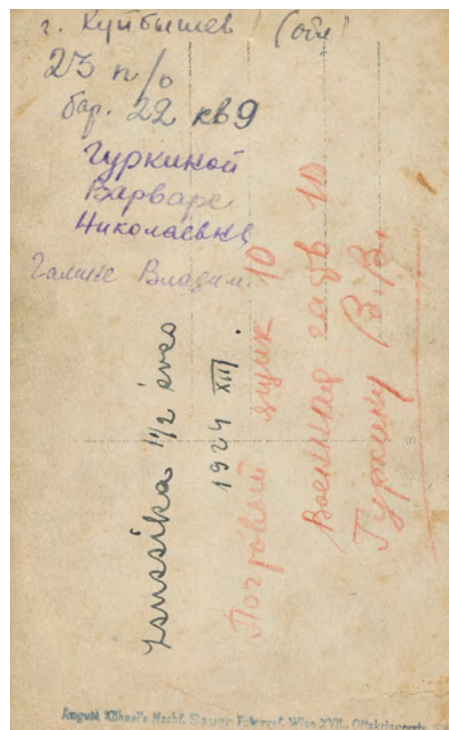 г. Куйбышев (обл)
23 п/о
бар. 22 кв 9
Гуркиной
Варваре
Николаевне
Галине Владим.
zsuzsika 1 1/2 éves
1924 XII.
Почтовый ящик 10
Военная часть 10
Гуркину В. В.
August Kühnel's Nachf. Sauer Wien XVII., Ottakringerstr.